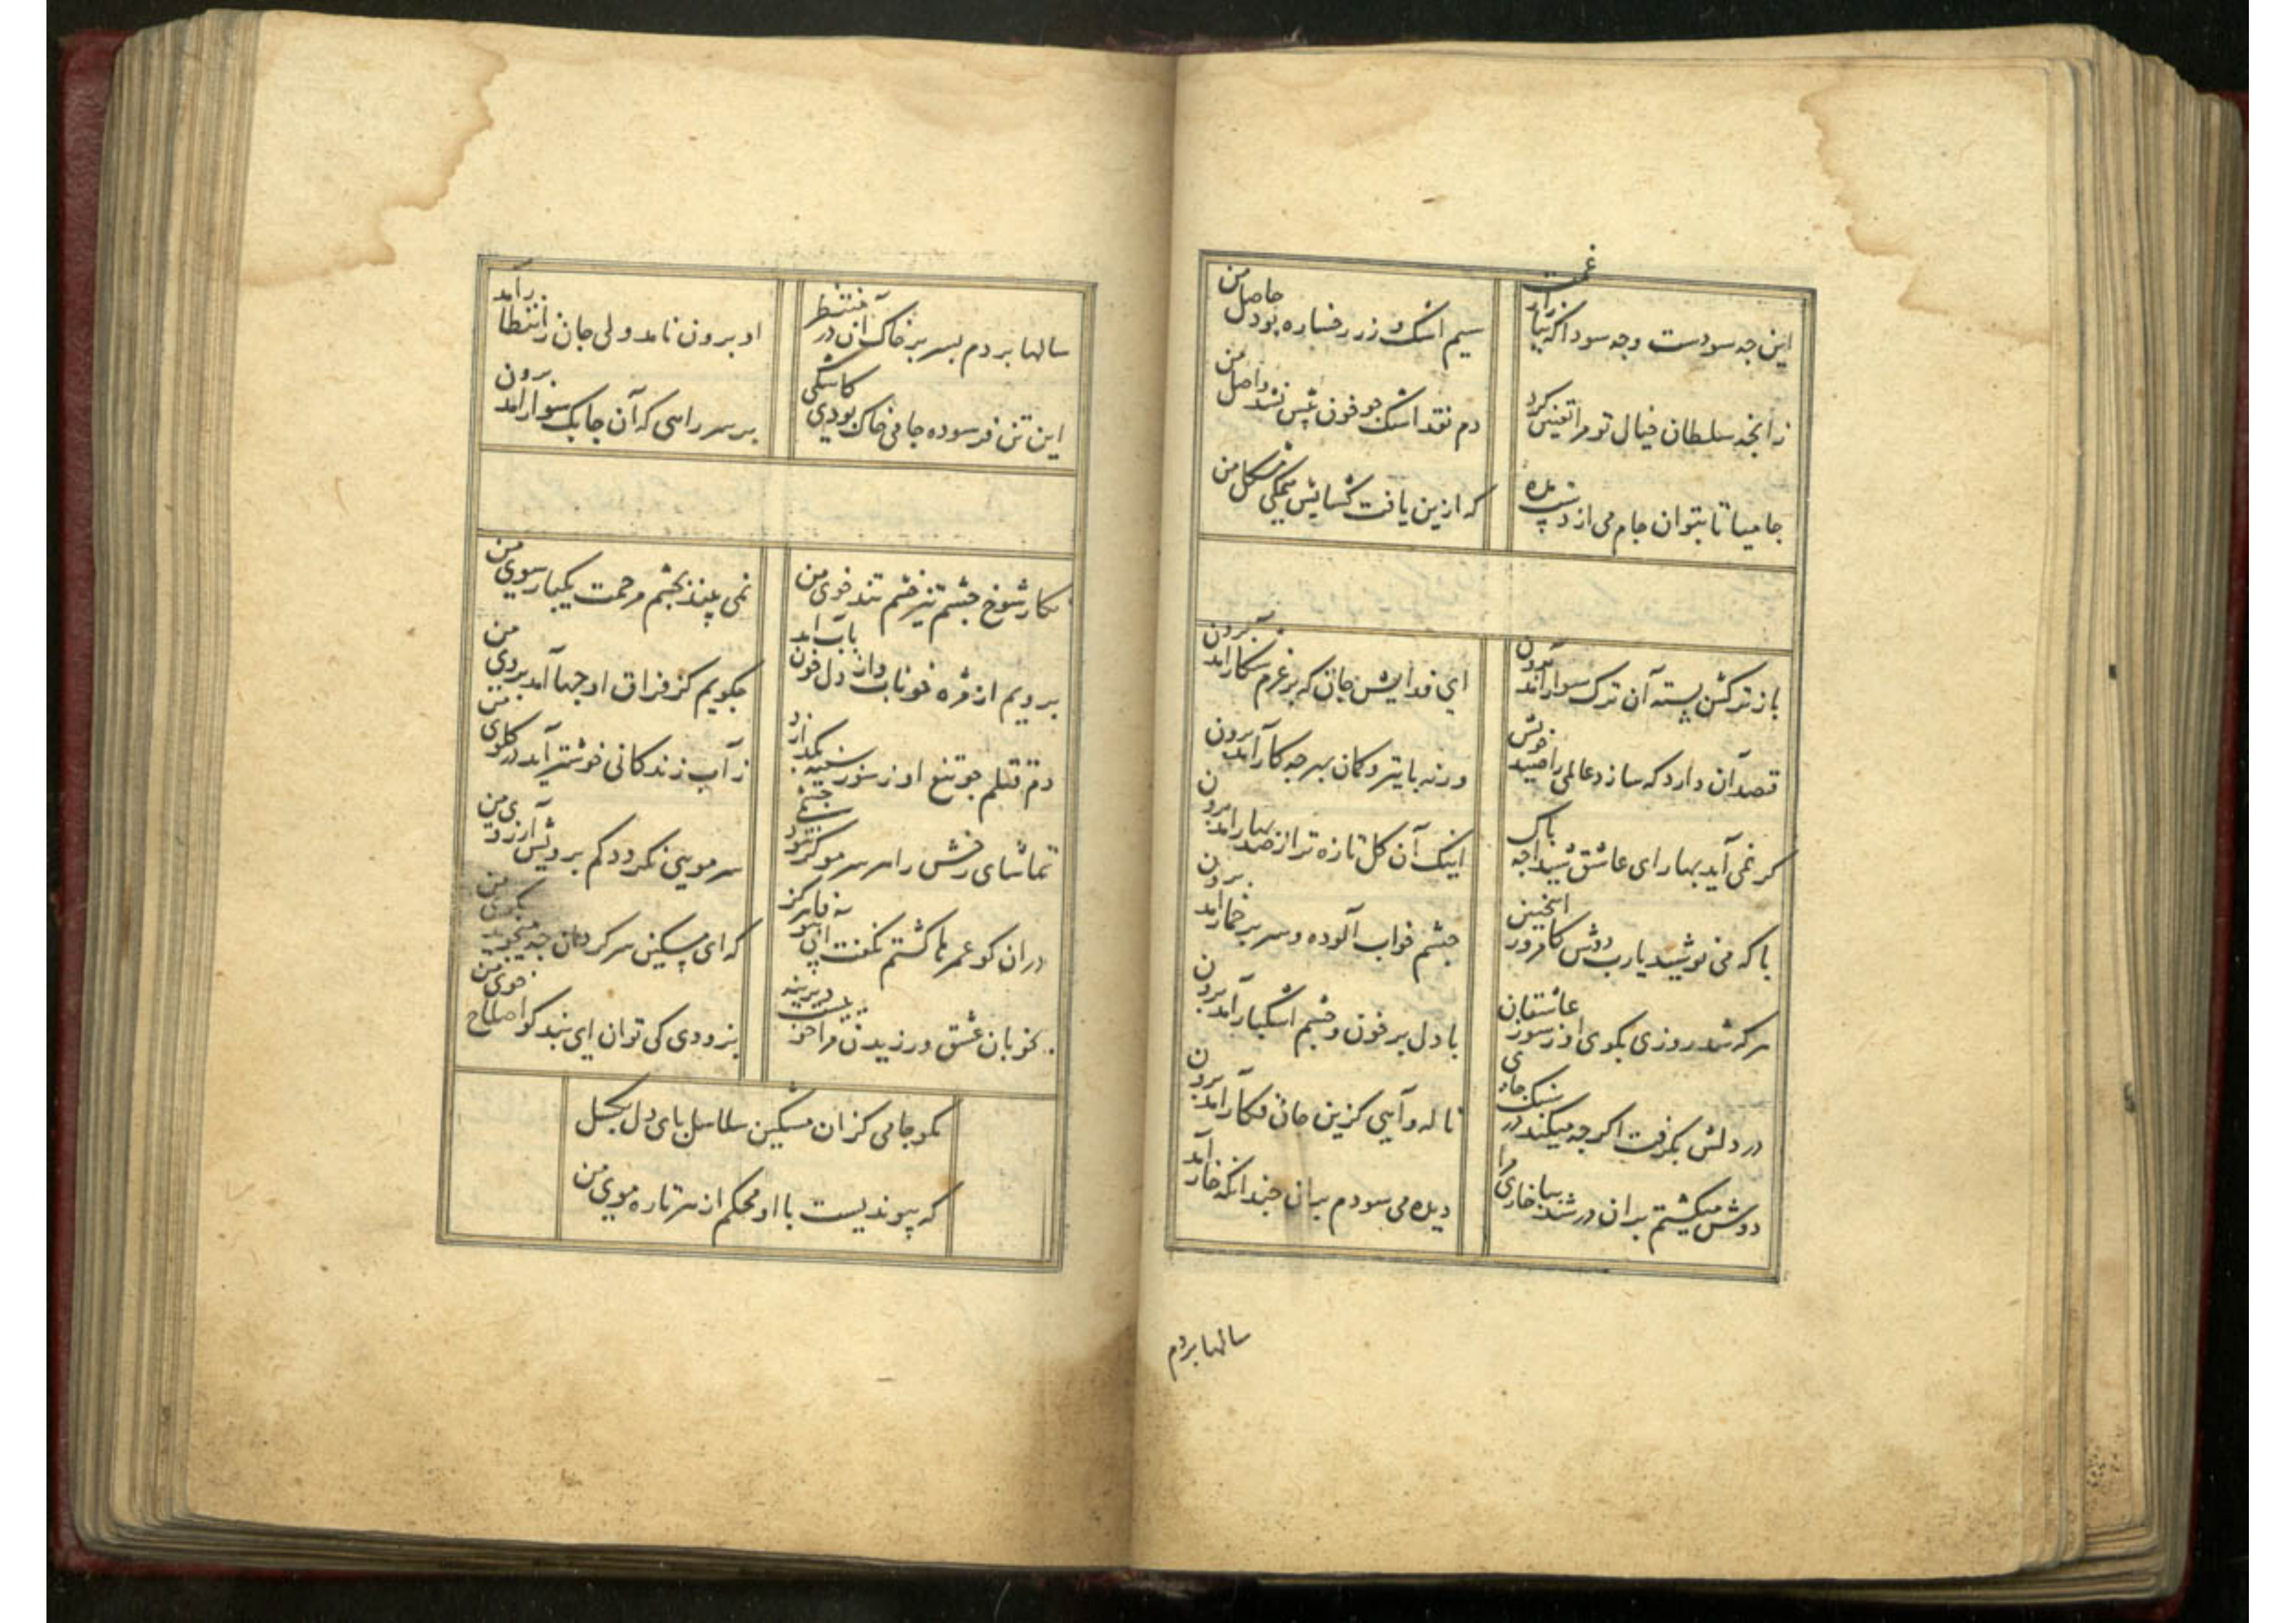 این چه سودست و چه سودا که ببازار غمت
سیم اشک و زر رخساره بود حاصل من
زانچه سلطان خیال تو مرا تعیین کرد
دم نقد اشک چو خون پیش نشد واصل من
جامیا تا بتوان جام می از دست مده
که ازین یافت گشایش همگی مشکل من
باز ترکش بسته آن ترک سوار آمد برون
ای فدایش جان که بر عزم شکار آمد برون
قصد آن دارد که سازد عالمی را صید خویش
ورنه با تیر و کمان بهر چه کار آمد برون
گر نمی آید بهار ای عاشق شیدا چه باک
اینک آن گل تازه تر از صد بهار آمد برون
با که می نوشید یارب دوش کامروز اینچنین
چشم خواب آلوده و سر پر خمار آمد برون
هر که شد روزی بکوی او ز سوز عاشقان
با دل پر خون و چشم اشکبار آمد برون
در دلش نگرفت اگرچه میکند در سنگ جای
ناله و آهی کزین جان فکار آمد برون
دوش میگشتم بران در شد بپا خاری مرا
دیده می سودم بران چندانکه خار آمد
سالها بردم
سالها بردم بسر بر خاک آن در منتظر
او برون نامد ولی جان ز انتظار آمد
این تن فرسوده جامی خاک بودی کاشکی
بر سر راهی که آن چابک سوار آمد برون
نگار شوخ چشم تیز خشم تند خوی من
نمی بیند بچشم مرحمت یکبار سوی من
برویم از مژه خوناب و از دل خون ناب آمد
چگویم کز فراق او چها آمد بروی من
دم قتلم چو تیغ او ز سوز سینه بگدازد
ز آب زندگانی خوشتر آید در گلوی من
تماشای رخش را هر سر مو گر شود چشمی
سر مویی نگردد کم برویش آرزوی من
دران کو عمرها گشتم نگفت آن بی وفا هرگز
که ای مسکین سرگردان چه میجویی بکوی من
بخوبان عشق ورزیدن مرا خوییست دیرینه
بزودی کی توان ای پندگو اصلاح خوی من
مگو جامی کزان مشکین سلاسل پای دل بگسل
که پیوندیست با او محکم از هر تاره موی من